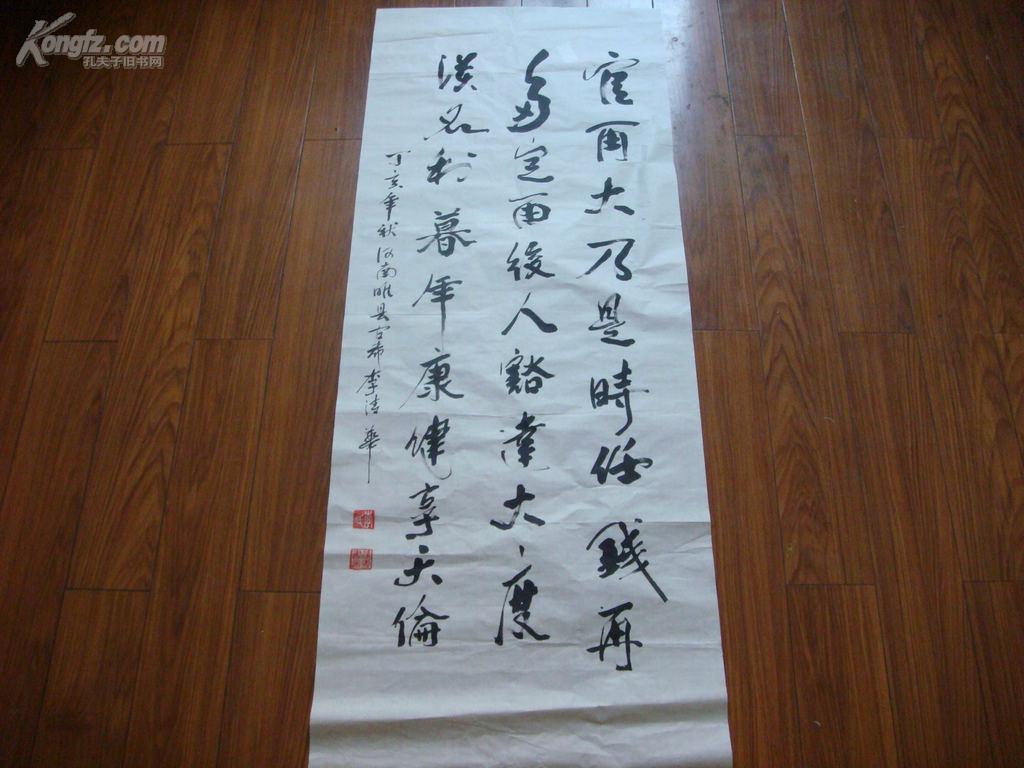 官再大乃是時任錢再
多定留後人豁達大度
淡名利暮年康健享天倫
丁亥年秋河南睢县古稀李清華
Kongfz.com
孔夫子旧书网